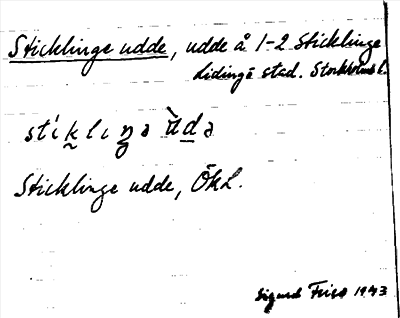 Sticklinge udde, udde å 1-2 Sticklinge
Lidingö stad. Stockholms l.
stí k l ı ŋ ə ù d ə
Sticklinge udde, ÖkL.
Sigurd Fries 1943